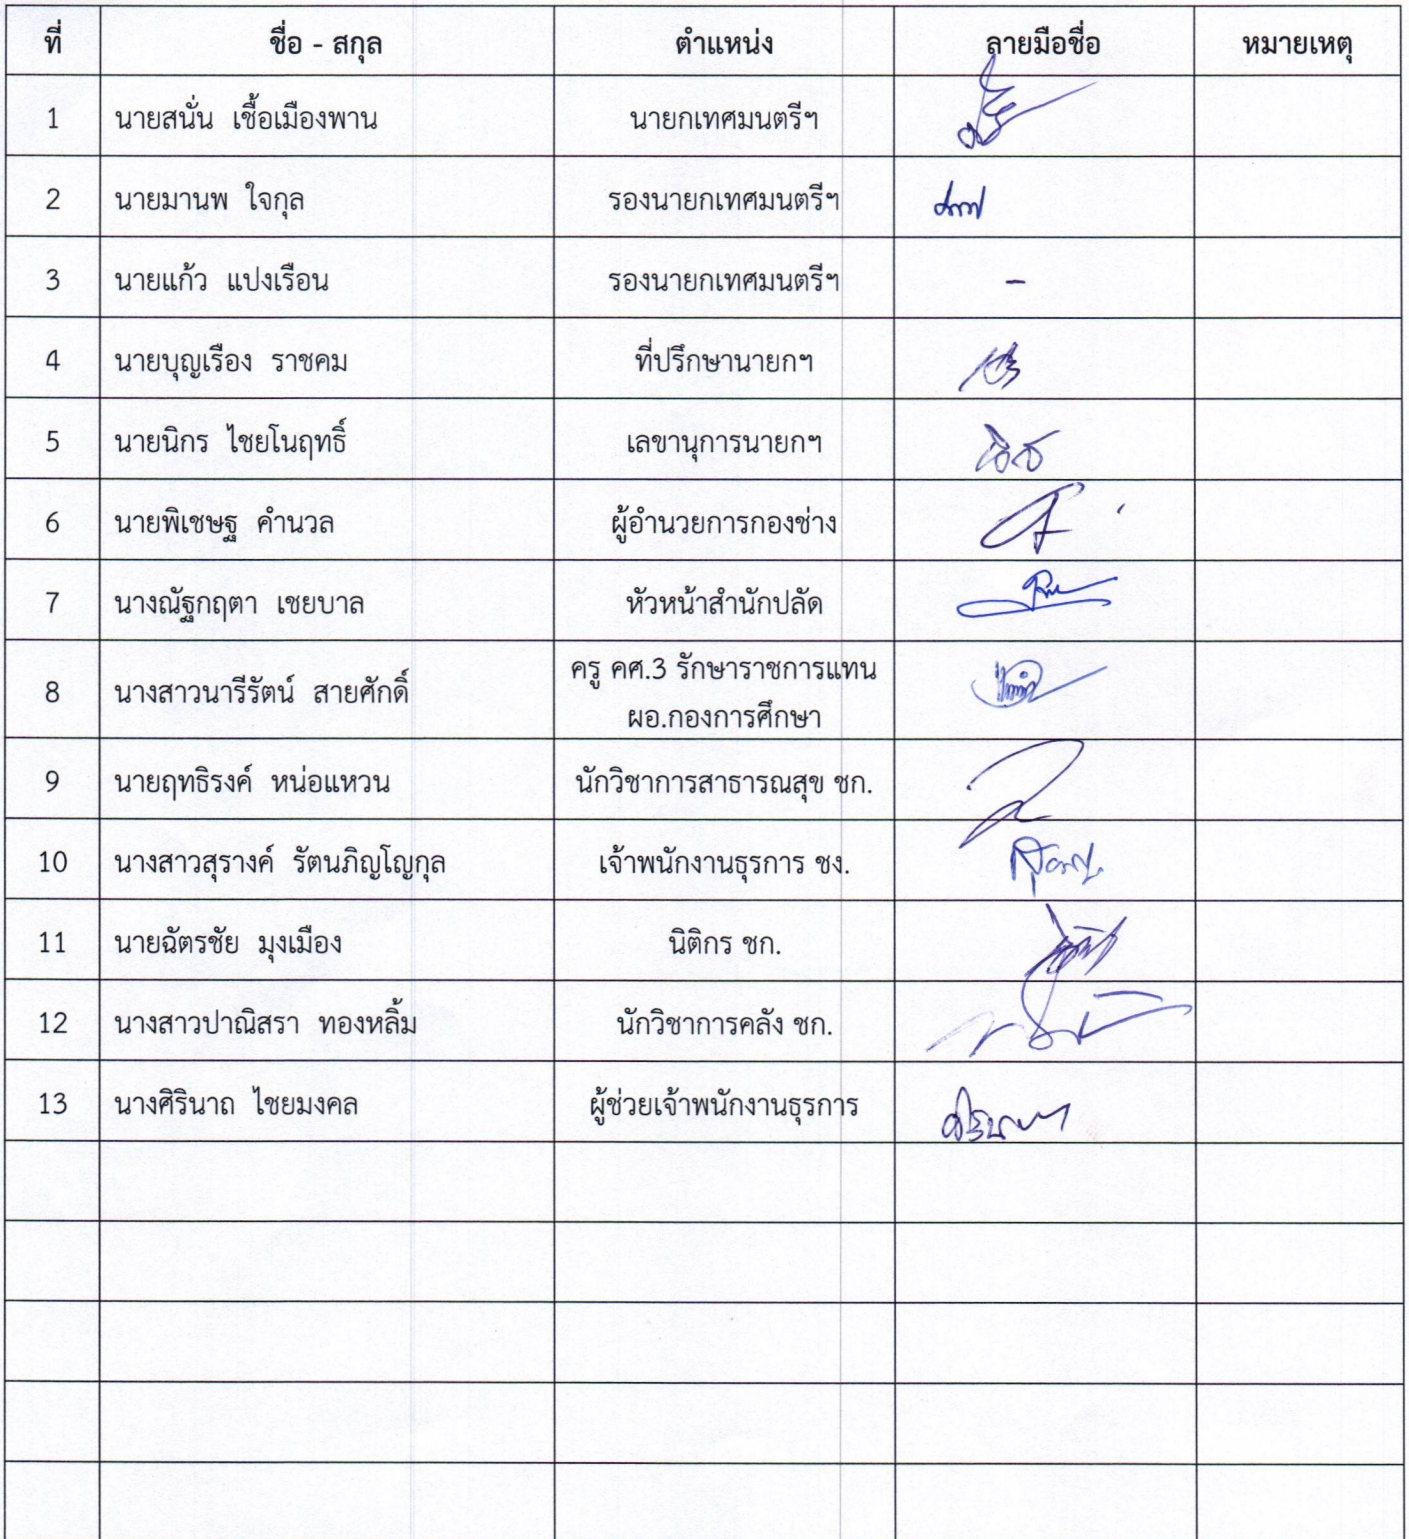 ที่ ชื่อ - สกุล ตำแหน่ง ลายมือชื่อ หมายเหตุ
1 นายสนั่น เชื้อเมืองพาน นายกเทศมนตรีฯ
2 นายมานพ ใจกุล รองนายกเทศมนตรีฯ
3 นายแก้ว แปงเรือน รองนายกเทศมนตรีฯ -
4 นายบุญเรือง ราชคม ที่ปรึกษานายกฯ
5 นายนิกร ไชยโนฤทธิ์ เลขานุการนายกฯ
6 นายพิเชษฐ คำนวล ผู้อำนวยการกองช่าง
7 นางณัฐกฤตา เชยบาล หัวหน้าสำนักปลัด
8 นางสาวนารีรัตน์ สายศักดิ์ ครู คศ.3 รักษาราชการแทน
ผอ.กองการศึกษา
9 นายฤทธิรงค์ หน่อแหวน นักวิชาการสาธารณสุข ชก.
10 นางสาวสุรางค์ รัตนภิญโญกุล เจ้าพนักงานธุรการ ชง.
11 นายฉัตรชัย มุงเมือง นิติกร ชก.
12 นางสาวปาณิสรา ทองหลิ้ม นักวิชาการคลัง ชก.
13 นางศิรินาถ ไชยมงคล ผู้ช่วยเจ้าพนักงานธุรการ